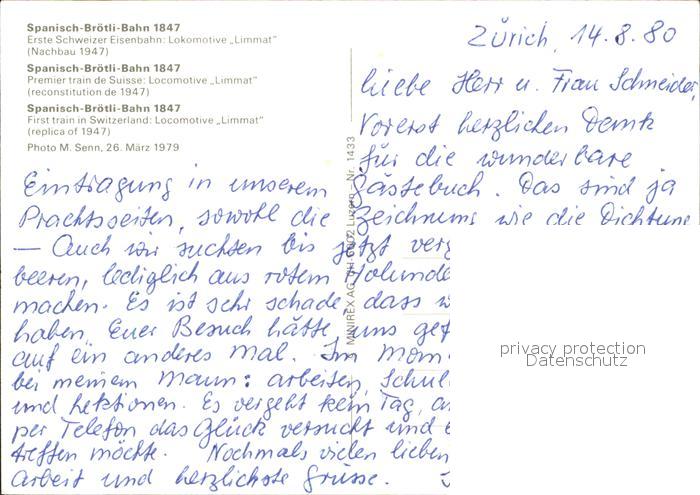 Spanisch-Brötli-Bahn 1847
Erste Schweizer Eisenbahn: Lokomotive „Limmat"
(Nachbau 1947)
Spanisch-Brötli-Bahn 1847
Premier train de Suisse: Locomotive „Limmat"
(reconstitution de 1947)
Spanisch-Brötli-Bahn 1847
First train in Switzerland: Locomotive „Limmat"
(replica of 1947)
Photo M. Senn, 26. März 1979
MINIREX AG, CH-6002 Luzern – Nr. 1433
Zürich, 14.8.80
Liebe Herr u. Frau Schmeider,
Vorerst herzlichen Dank
für die wunderbare
Eintragung in unserem Gästebuch. Das sind ja
Prachtsseiten, sowohl die Zeichnung wie die Dichtung
— Auch wir suchten bis jetzt verg
beeren, lediglich aus rotem Holunde
machen. Es ist sehr schade, dass w
haben. Euer Besuch hätte uns gef
auf ein anderes Mal. Im Mom
bei meinem Mann: arbeiten, Schul
und Lektionen. Es vergeht kein Tag, a
per Telefon das Glück versucht und
treffen möchte. Nochmals vielen lieben
Arbeit und herzlichste Grüsse.
privacy protection
Datenschutz